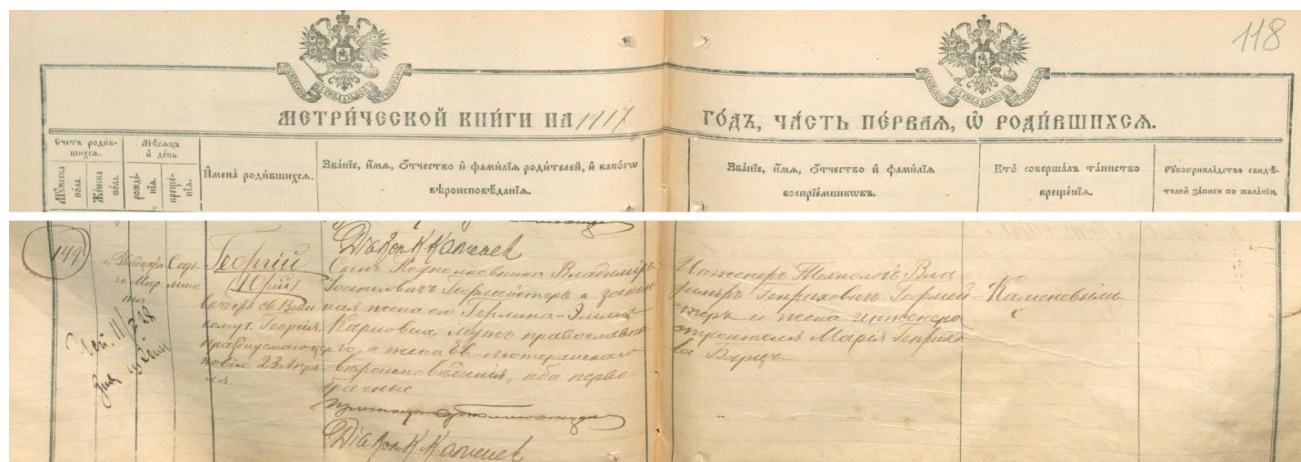 118
МЕТРИ́ЧЕСКОЙ КНИ́ГИ НА 1917 ГО́ДЪ, ЧА́СТЬ ПЕ́РВАЯ, Ѡ РОДИ́ВШИХСЯ.
Счетъ родившихся.
Мужеска пола.
Женска пола.
Мѣсяцъ и день
рожденія.
крещенія.
Имена родившихся.
Званіе, имя, отчество и фамилія родителей, и какогѡ
вѣроисповѣданія.
Званіе, имя, отчество и фамилія
воспріемниковъ.
Кто совершалъ таинство
крещенія.
Рукоприкладство свидѣ-
телей записи по желанію.
Діакон К Каменев
149
Георгій
(Юрій)
въ честь св. Вели
комуч. Георгія
празднуемаго
23 Апр
Седь
маго
Мар
та
Сынъ Подполковника Владиміръ
Генриховичъ Гофмейстеръ и закон
ная жена его Гермина-Эмма
Карловна, мужъ православна
го, а жена Ев.-лютеранскаго
вѣроисповѣданія, оба перво
брачные.
Діакон К Каменев
Инженеръ Технологъ Вла
диміръ Генриховичъ Гофмей
стеръ и жена инженеро
строителя Марія Генрихо
ва Барцъ
Каменевымъ